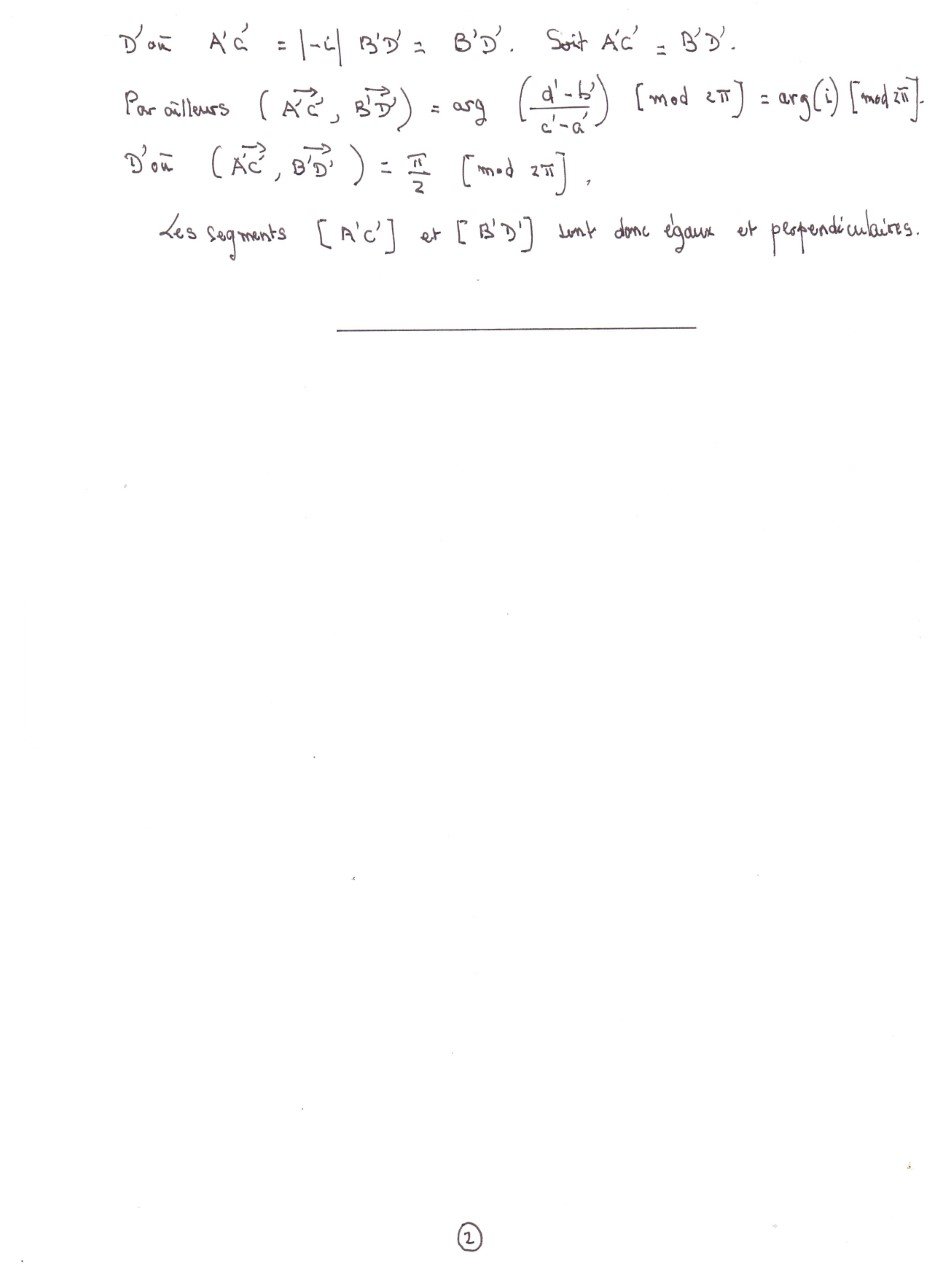 D'où A'C' = |-i| B'D' = B'D'. Soit A'C' = B'D'.
Par ailleurs (A'C'→, B'D'→) = arg ((d'-b')/(c'-a')) [mod 2π] = arg(i) [mod 2π].
D'où (A'C'→, B'D'→) = π/2 [mod 2π].
Les segments [A'C'] et [B'D'] sont donc égaux et perpendiculaires.
2